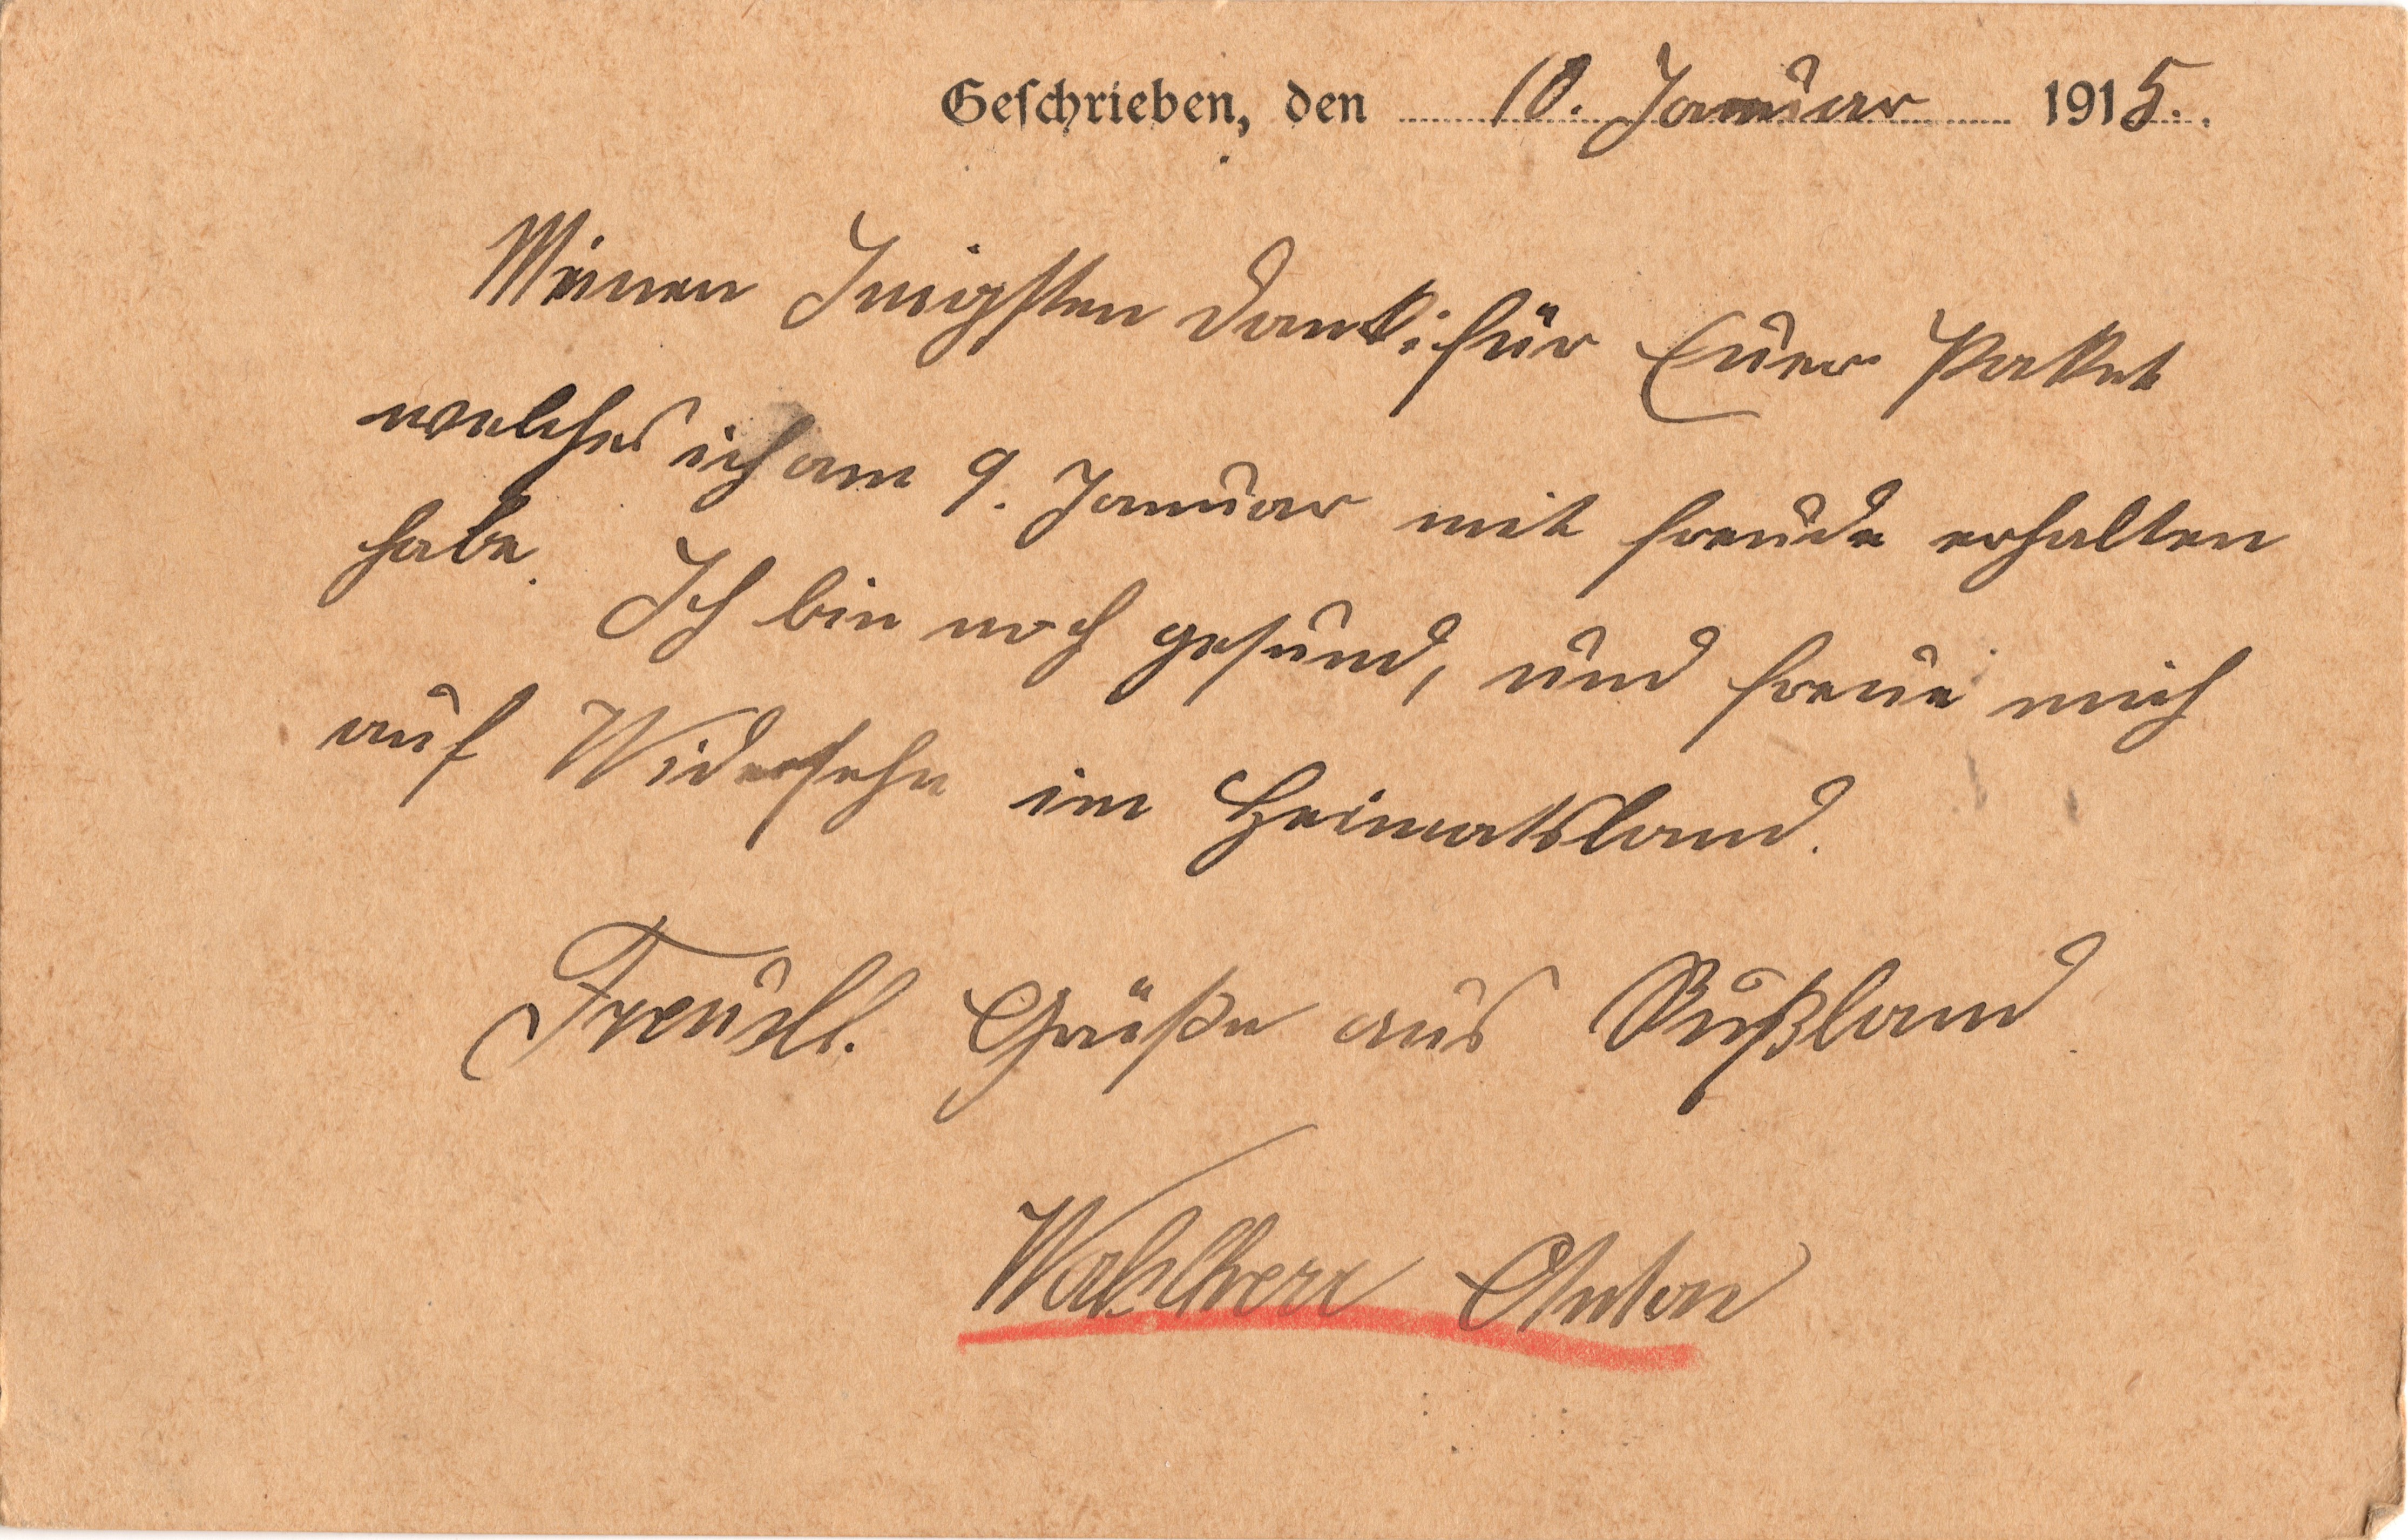 Geschrieben, den 10. Januar 1915.
Meinen Inigsten Dank; für Euer Packet
welches ich am 9. Januar mit freude erhalten
habe. Ich bin noch gesund, und freue mich
auf Widersehn im Heimatsland.
Freudl. Grüße aus Rußland
Anton